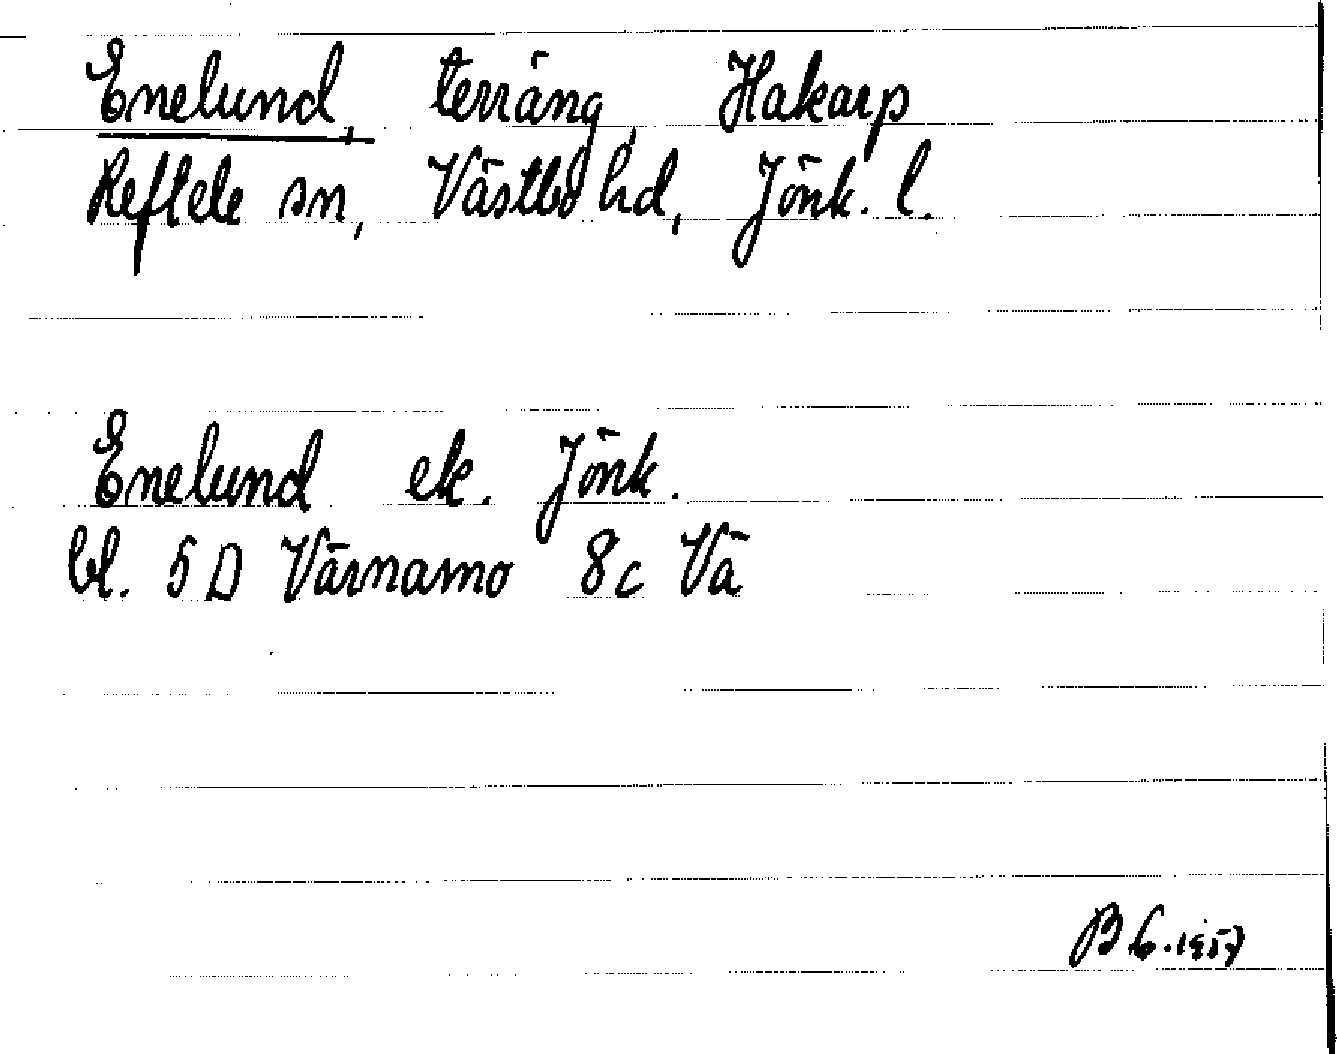 Enelund, terräng, Hakarp
Reftele sn, Västbo hd, Jönk. l.
Enelund ek. Jönk.
bl. 5 D Värnamo 8c Vä
B 6.1957